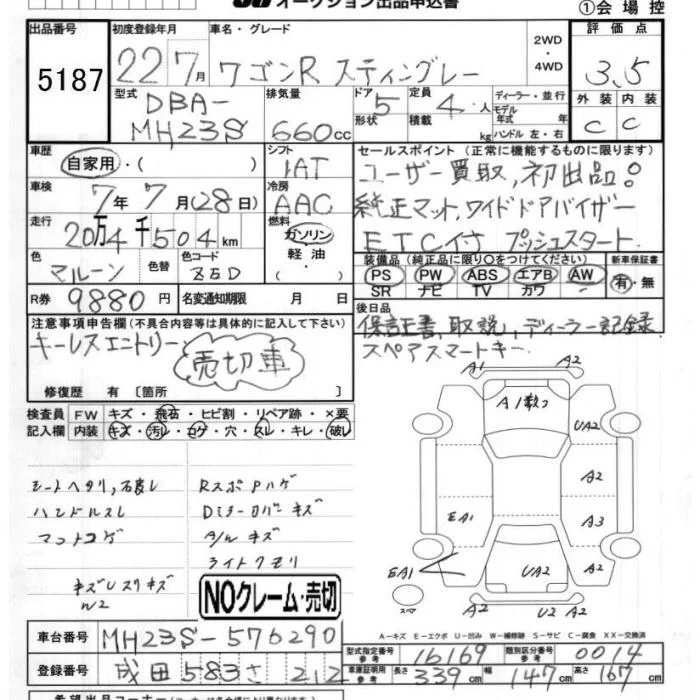 オークション出品申込書
①会場控
出品番号 初度登録年月 車名・グレード 2WD ・4WD 評価点
5187 22 7月 ワゴンR スティングレー 3.5
型式 排気量 ドア 定員 ディーラー・並行 外装 内装
DBA-MH23S 660cc 5 形状 4人 積載 kg モデル年式 年式 ハンドル 左・右 C C
車歴 シフト セールスポイント(正常に機能するものに限ります)
自家用・( ) IAT ユーザー買取,初出品。
車検 7年7月(28日) 冷房 AAC 純正マット,ワイドドアバイザー
走行 20万4千504km 燃料 ガソリン ETC付 プッシュスタート
軽油 ( )
色 マルーン 色替 色コード ZED
装備品(純正品に限り○をつけてください) 新車保証書
PS PW ABS エアB AW 有・無
SR ナビ TV カワ
R券 9880円 名変通知期限 月 日
後日品
保証書,取説,ディーラー記録
スペアスマートキー
注意事項申告欄(不具合内容等は具体的に記入して下さい)
キーレスエントリー
売切車
修復歴 有〔箇所 〕
検査員 FW キズ・飛石・ヒビ割・リペア跡・×要
記入欄 内装 キズ・汚レ・コゲ・穴・スレ・キレ・破レ
シートヘタリ, Rスポハゲ
ハンドルスレ Dミラーカバーキズ
マットコゲ A/Wキズ
ライトクモリ
キズレスリキズ
W2
NOクレーム・売切
A1 A2
A1 UA2
A2
EA1 A3
EA1 UA2 A2
スマ A2 U2 A2
A-キズ E-エクボ U-凹み W-補修跡 S-サビ C-腐食 XX-交換済
車台番号 MH23S-576290
型式指定番号 参考 16169 類別区分番号 参考 0014
登録番号 成田 583 さ 212
車庫証明用 参考 長さ 339cm 幅 147cm 高さ 167cm